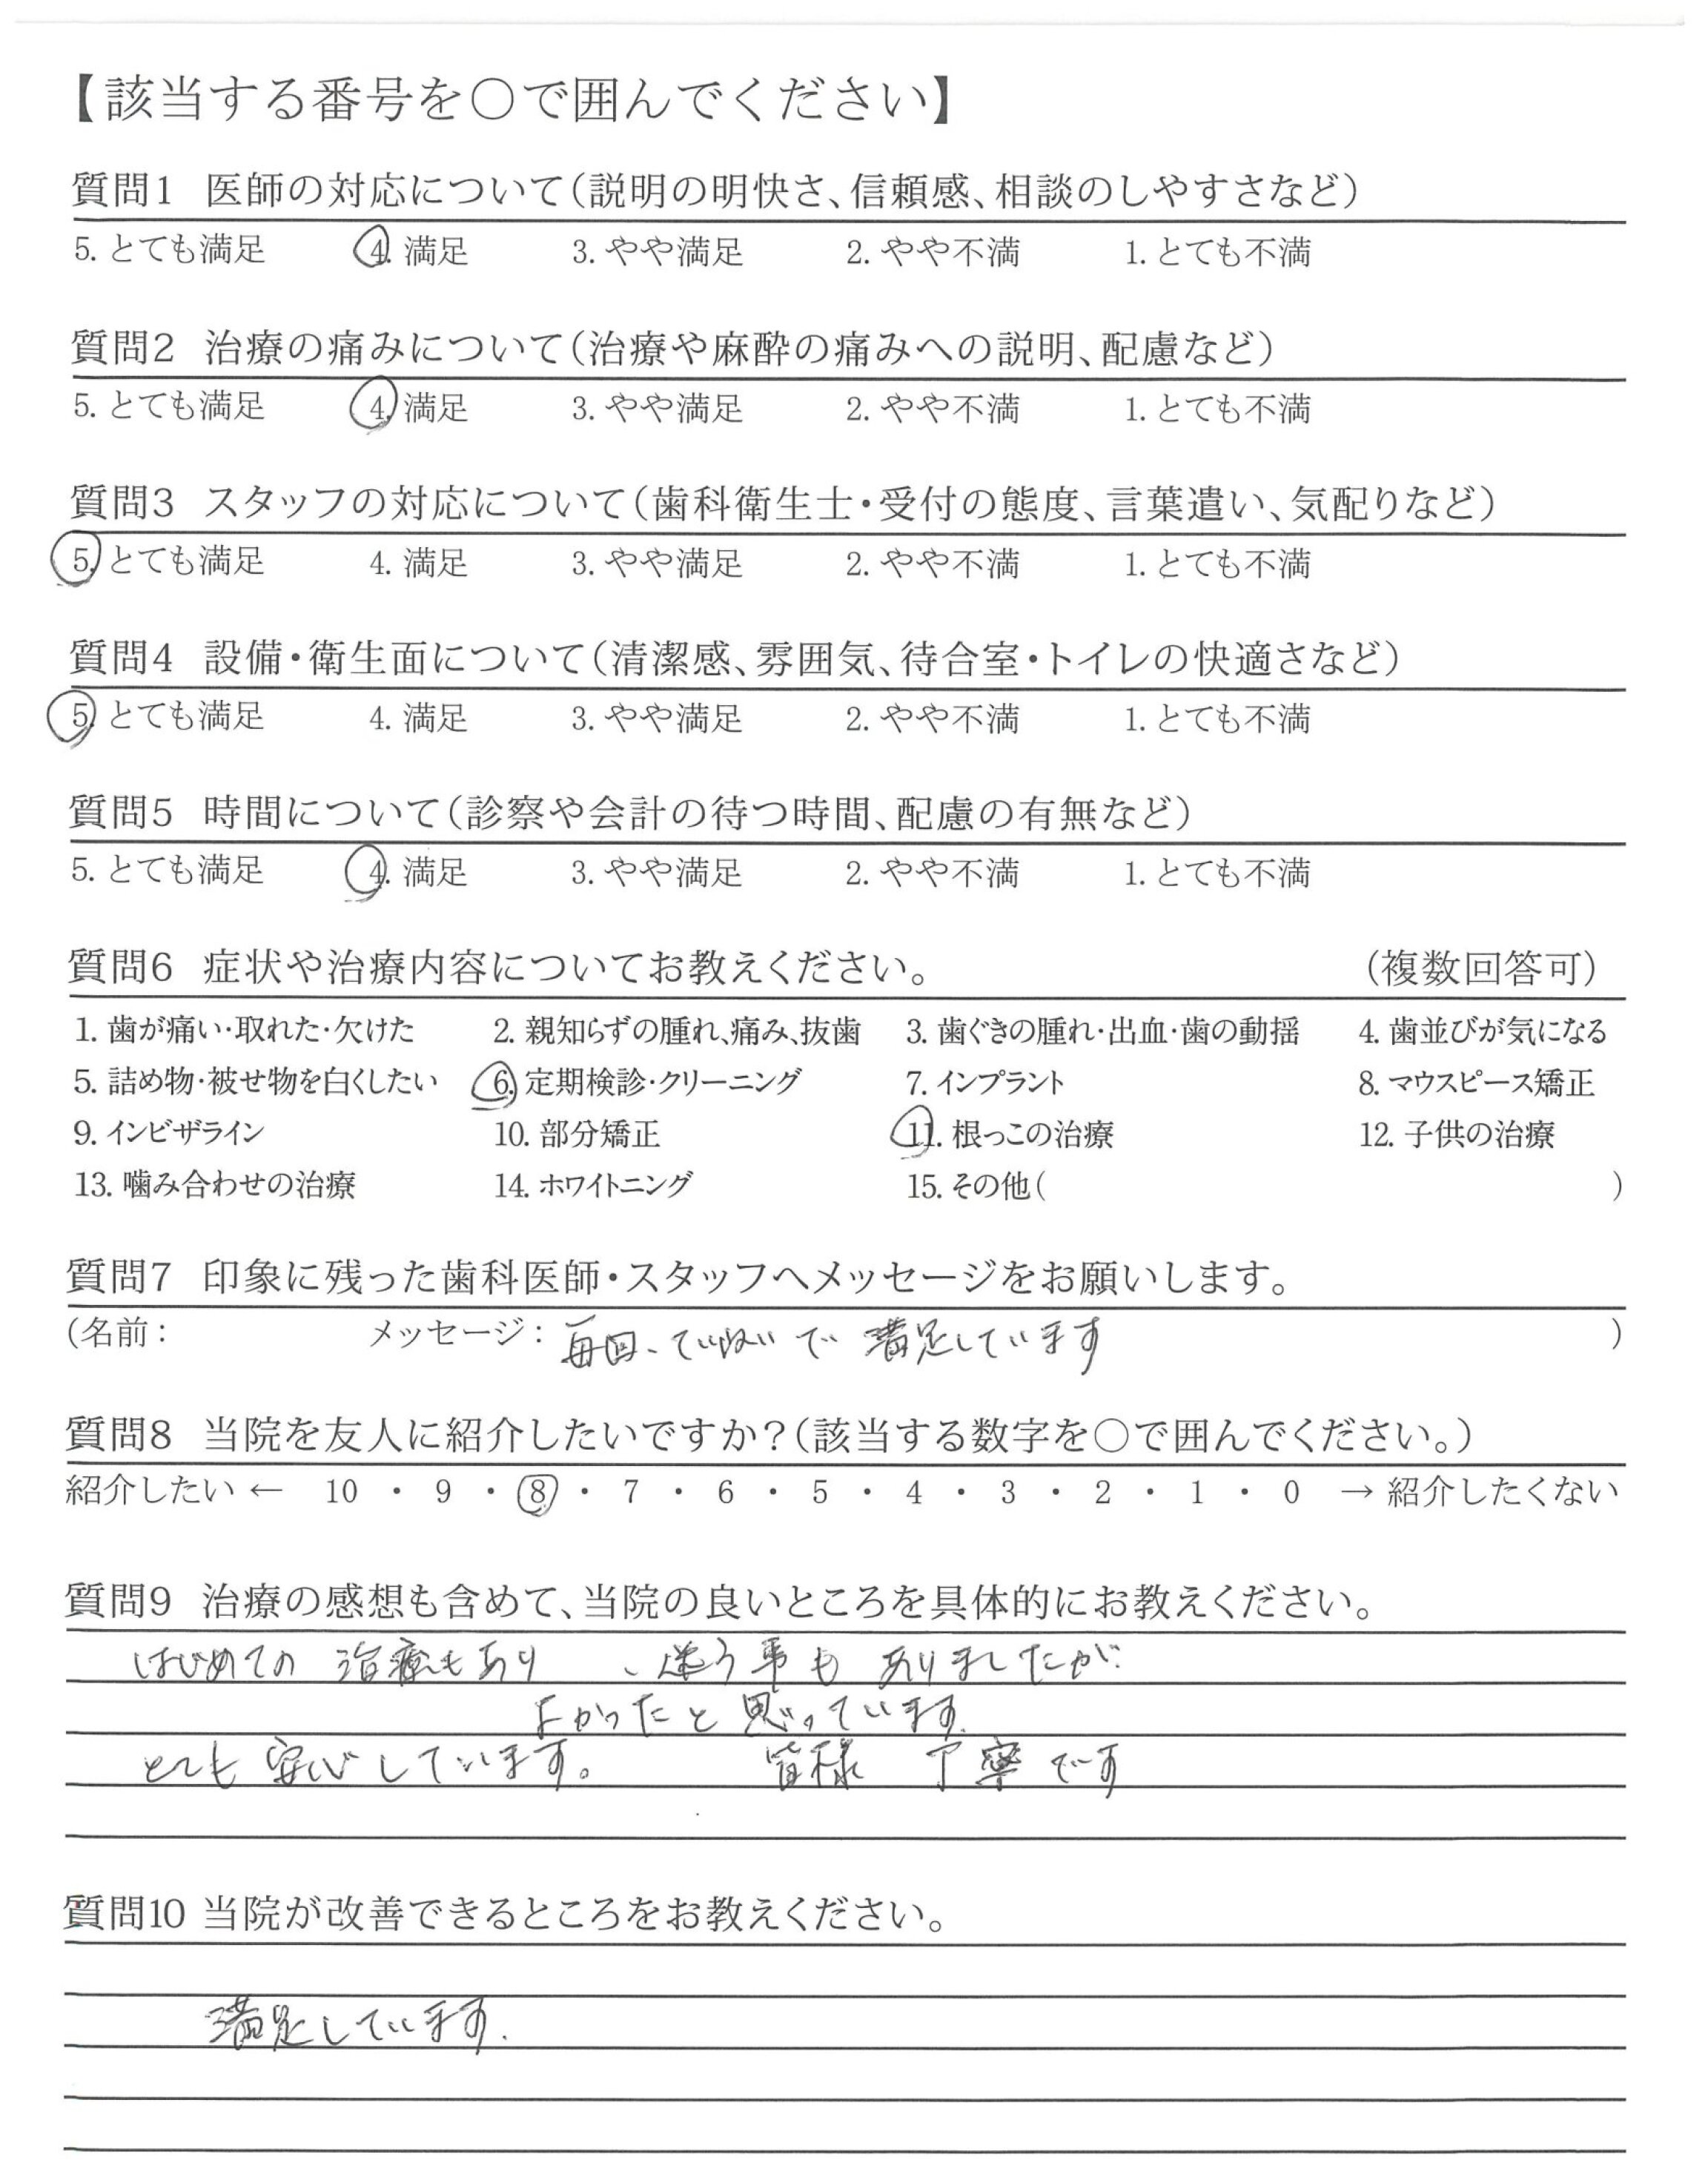 【該当する番号を〇で囲んでください】
質問1 医師の対応について(説明の明快さ、信頼感、相談のしやすさなど)
5. とても満足 4. 満足 3. やや満足 2. やや不満 1. とても不満
質問2 治療の痛みについて(治療や麻酔の痛みへの説明、配慮など)
5. とても満足 4. 満足 3. やや満足 2. やや不満 1. とても不満
質問3 スタッフの対応について(歯科衛生士・受付の態度、言葉遣い、気配りなど)
5. とても満足 4. 満足 3. やや満足 2. やや不満 1. とても不満
質問4 設備・衛生面について(清潔感、雰囲気、待合室・トイレの快適さなど)
5. とても満足 4. 満足 3. やや満足 2. やや不満 1. とても不満
質問5 時間について(診察や会計の待つ時間、配慮の有無など)
5. とても満足 4. 満足 3. やや満足 2. やや不満 1. とても不満
質問6 症状や治療内容についてお教えください。 (複数回答可)
1. 歯が痛い・取れた・欠けた 2. 親知らずの腫れ、痛み、抜歯 3. 歯ぐきの腫れ・出血・歯の動揺 4. 歯並びが気になる
5. 詰め物・被せ物を白くしたい 6. 定期検診・クリーニング 7. インプラント 8. マウスピース矯正
9. インビザライン 10. 部分矯正 11. 根っこの治療 12. 子供の治療
13. 噛み合わせの治療 14. ホワイトニング 15. その他( )
質問7 印象に残った歯科医師・スタッフへメッセージをお願いします。
(名前: メッセージ: 毎回、ていねいで 満足しています )
質問8 当院を友人に紹介したいですか?(該当する数字を〇で囲んでください。)
紹介したい ← 10 ・ 9 ・ 8 ・ 7 ・ 6 ・ 5 ・ 4 ・ 3 ・ 2 ・ 1 ・ 0 → 紹介したくない
質問9 治療の感想も含めて、当院の良いところを具体的にお教えください。
はじめての 治療もあり 、迷う事も ありましたが
よかったと 思っています.
とても 安心しています。 皆様 丁寧です
質問10 当院が改善できるところをお教えください。
満足しています.